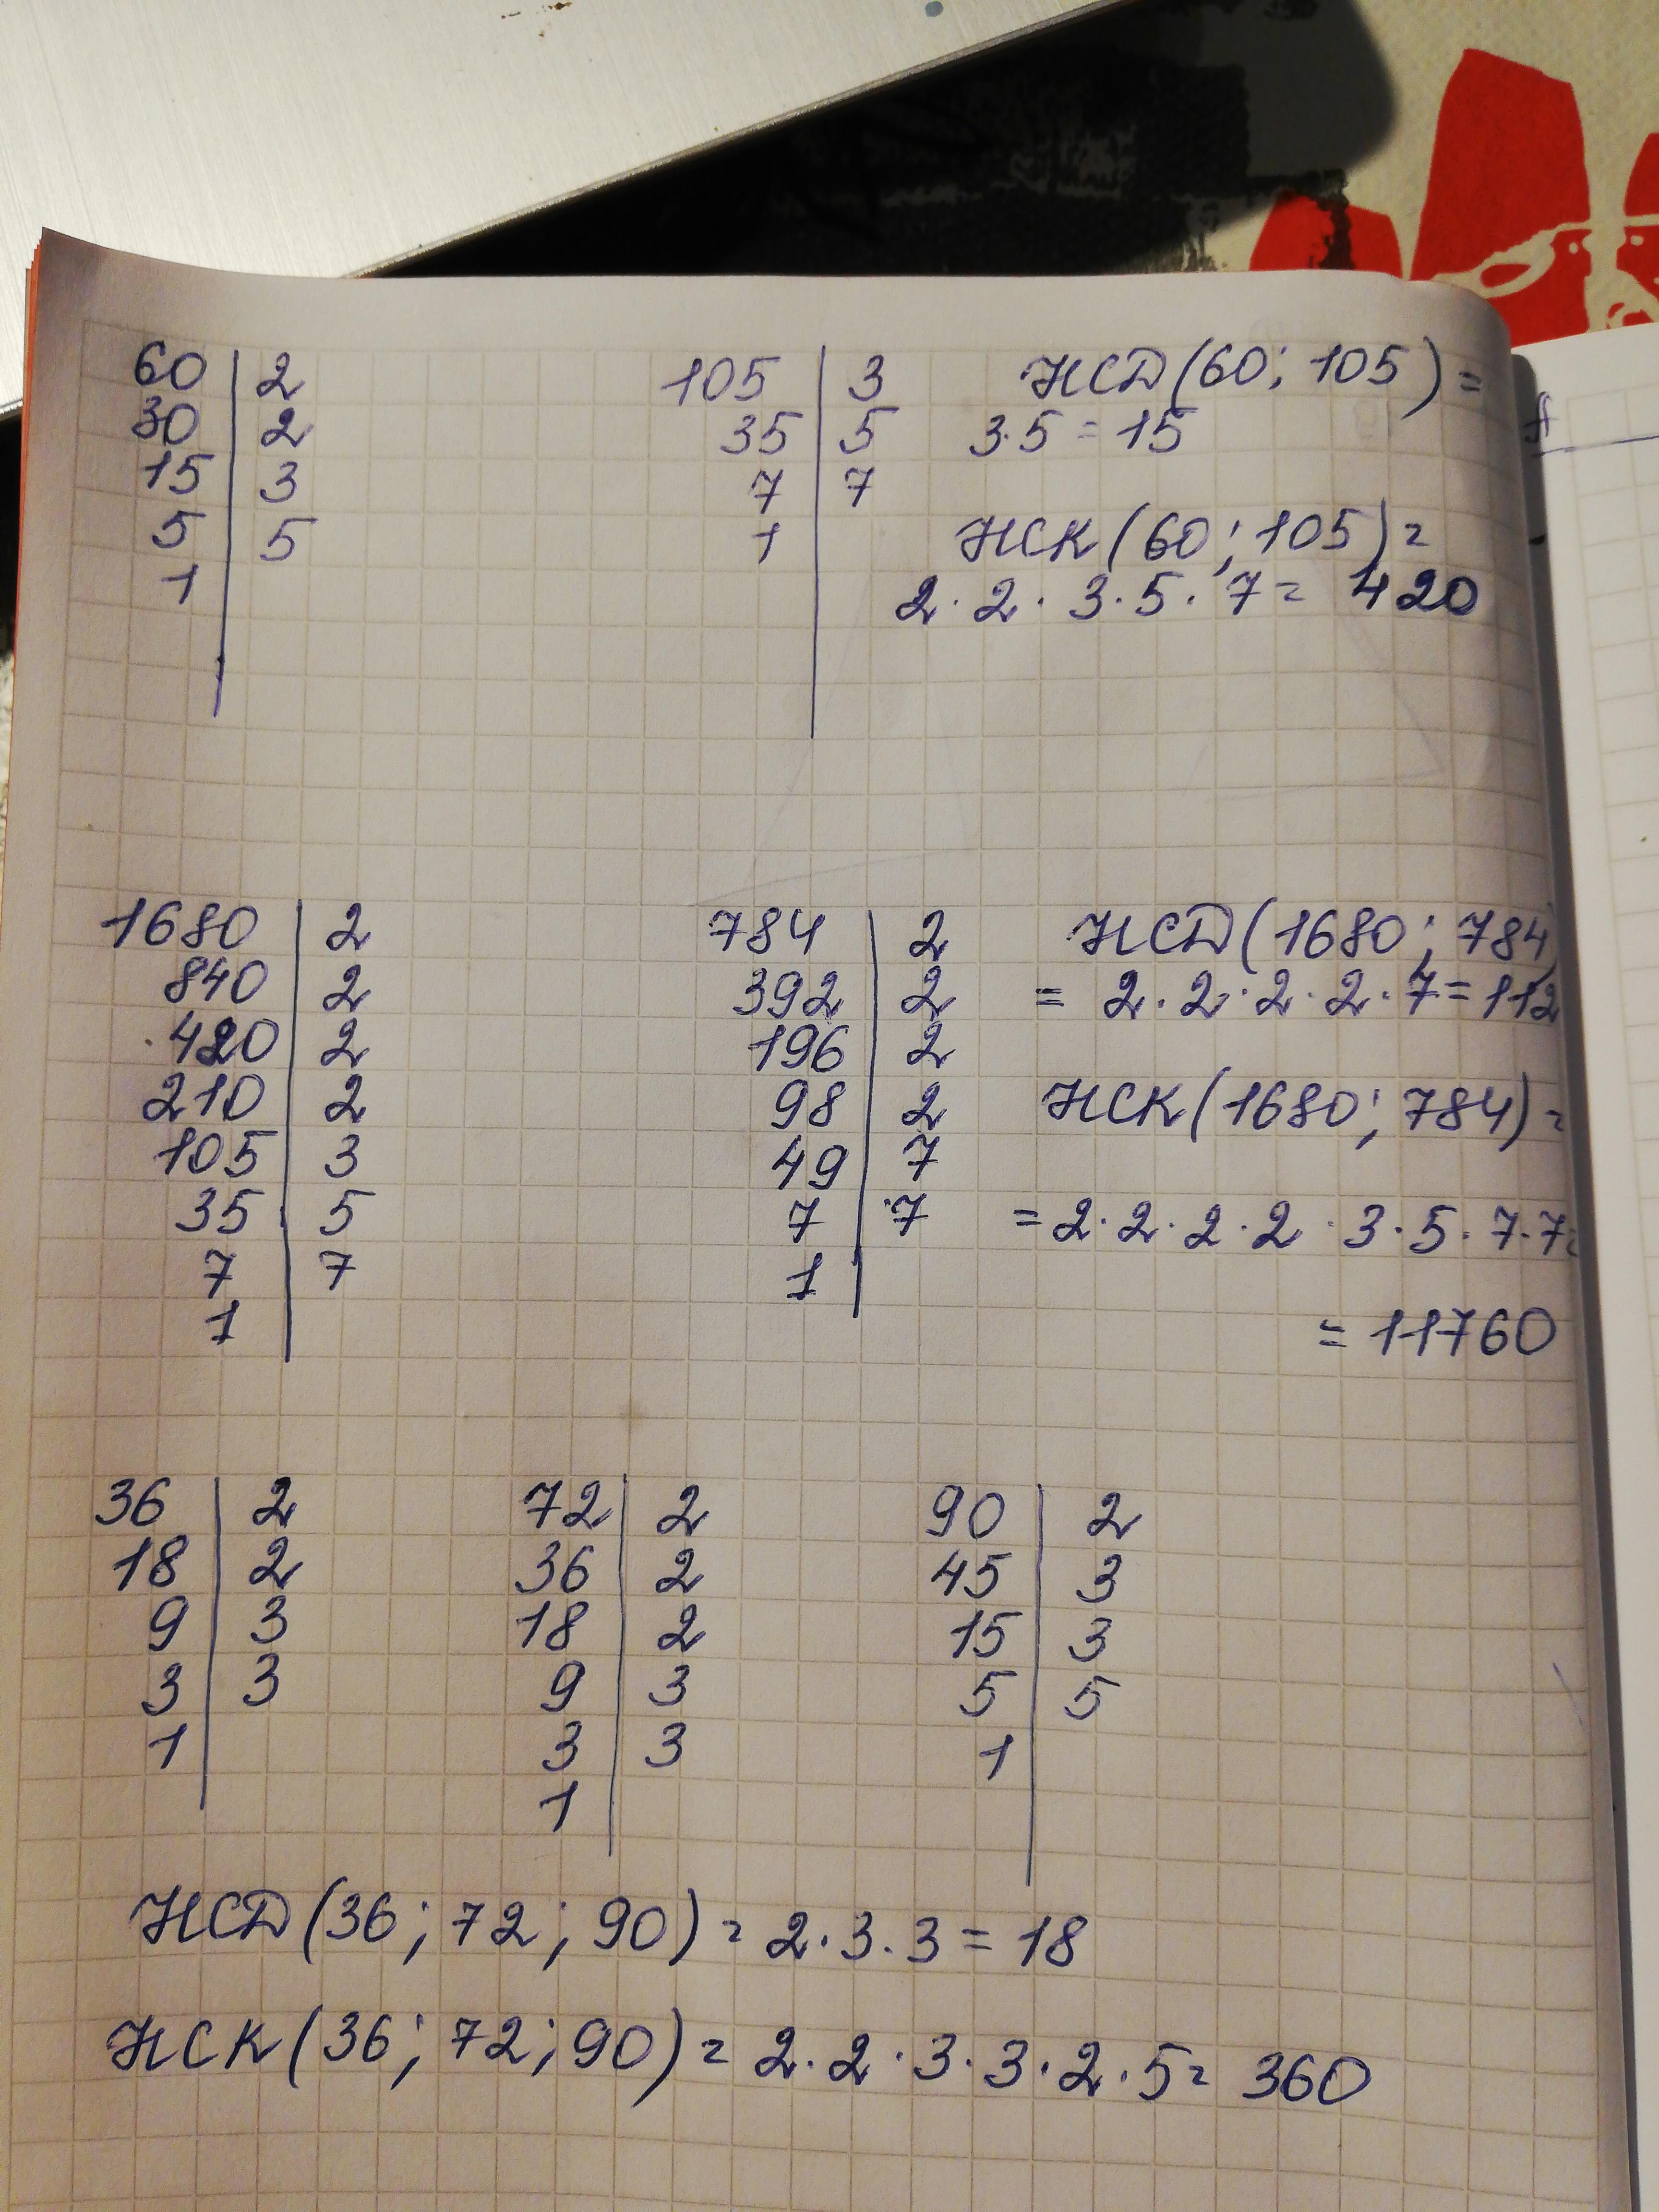 60 | 2 105 | 3 НСД(60; 105) =
30 | 2 35 | 5 3·5 = 15
15 | 3 7 | 7
5 | 5 1 | НСК(60; 105) =
1 | 2·2·3·5·7 = 420
1680 | 2 784 | 2 НСД(1680; 784)
840 | 2 392 | 2 = 2·2·2·2·7 = 112
420 | 2 196 | 2
210 | 2 98 | 2 НСК(1680; 784) =
105 | 3 49 | 7
35 | 5 7 | 7 = 2·2·2·2·3·5·7·7 =
7 | 7 1 |
1 | = 11760
36 | 2 72 | 2 90 | 2
18 | 2 36 | 2 45 | 3
9 | 3 18 | 2 15 | 3
3 | 3 9 | 3 5 | 5
1 | 3 | 3 1 |
1 |
НСД(36; 72; 90) = 2·3·3 = 18
НСК(36; 72; 90) = 2·2·3·3·2·5 = 360